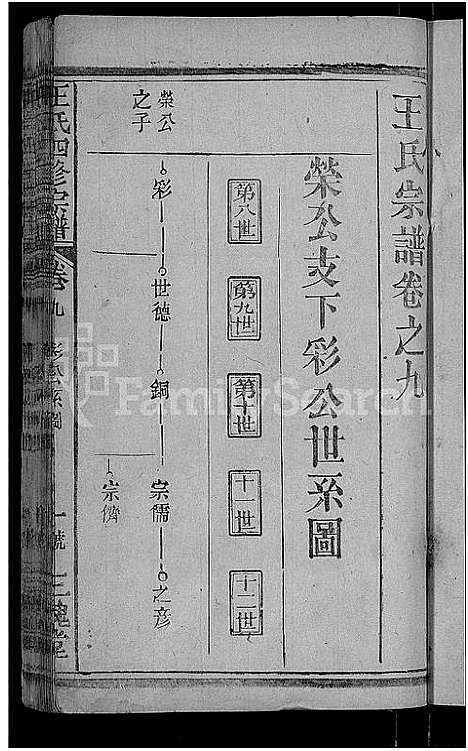 王氏宗譜卷之九
榮公支下彩公世系圖
第八世
第九世
第十世
十一世
十二世
榮公
之子
彩
世德
銅
宗儒
之彦
宗儕
王氏四修宗譜
卷九
彩公系圖
一號
三槐堂
FamilySearch